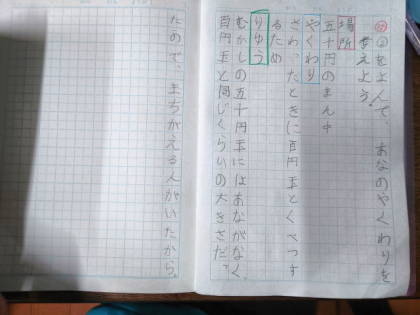 ②をよんで、あなのやくわりを
考えよう。
場所
五十円のまん中
やくわり
さわったときに百円玉とくべつす
るため
りゆう
むかしの五十円玉にはあながなく、
百円玉と同じくらいの大きさだっ
たので、まちがえる人がいたから。